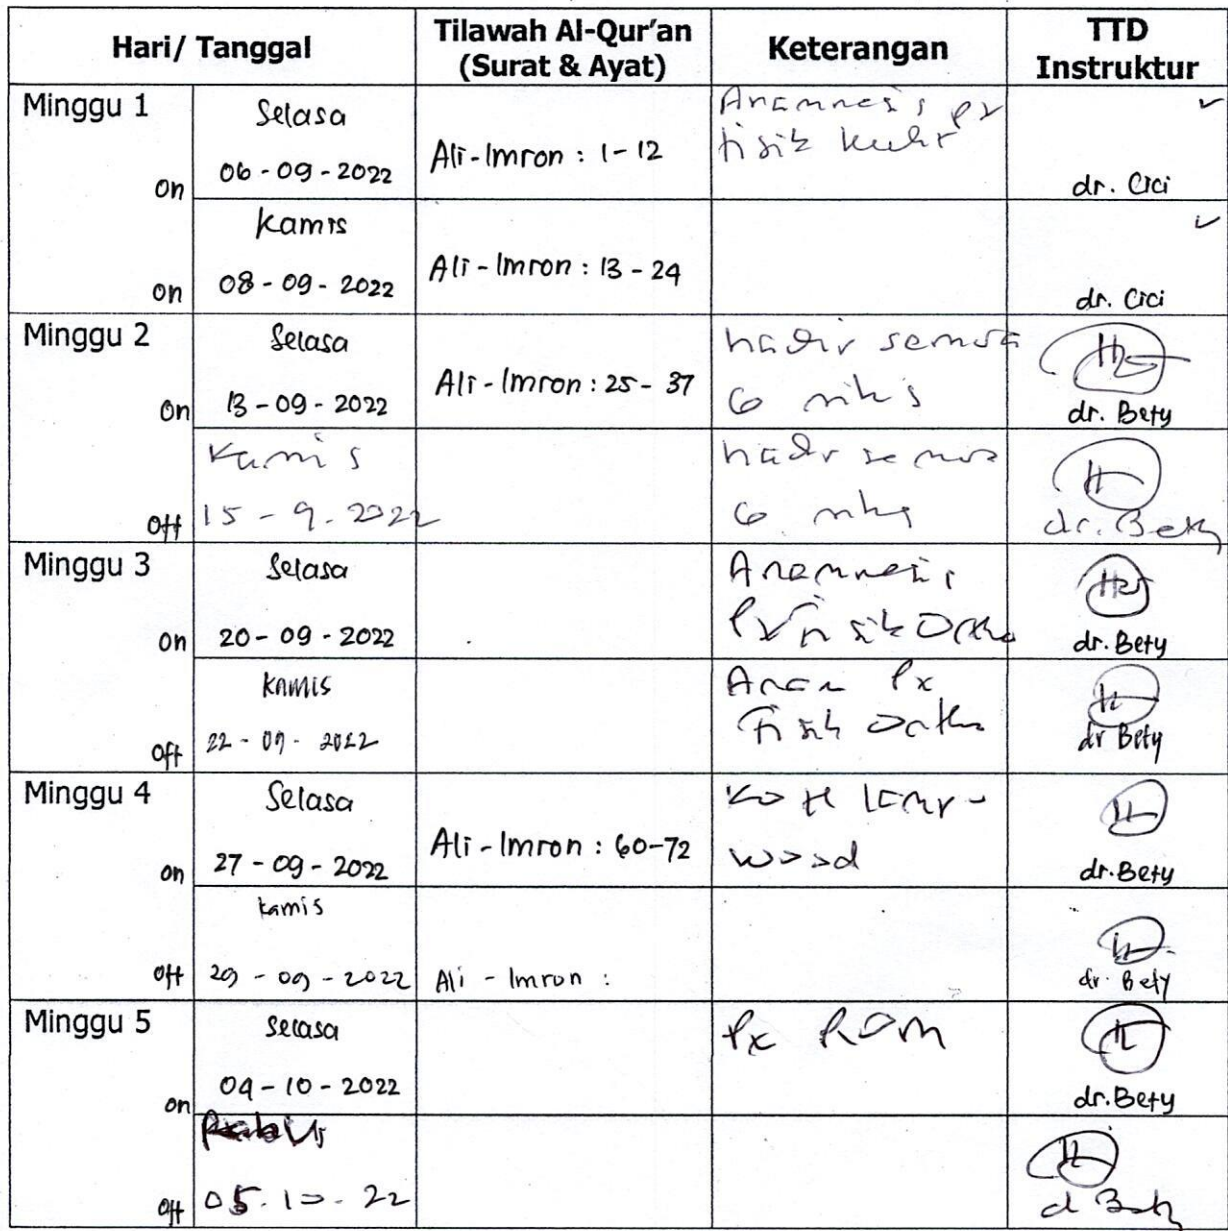 Hari/ Tanggal
Tilawah Al-Qur'an
(Surat & Ayat)
Keterangan
TTD
Instruktur
Minggu 1
on
Selasa
06 - 09 - 2022
Ali-Imron : 1-12
Anamnesis px
fisik kulit
dr. Cici
on
Kamis
08 - 09 - 2022
Ali-Imron : 13 - 24
dr. Cici
Minggu 2
on
Selasa
13 - 09 - 2022
Ali-Imron : 25 - 37
hadir semua
6
dr. Bety
off
Kamis
15 - 9 - 2022
hadir semua
6
dr. Bety
Minggu 3
on
Selasa
20 - 09 - 2022
Anamnesis
Px fisik Ortho
dr. Bety
off
KAMIS
22 - 09 - 2022
Px
Fisik Ortho
dr Bety
Minggu 4
on
Selasa
27 - 09 - 2022
Ali-Imron : 60-72
wood
dr. Bety
off
kamis
29 - 09 - 2022
Ali - Imron :
dr. Bety
Minggu 5
on
Selasa
04 - 10 - 2022
Px ROM
dr. Bety
off
05. 10. 22